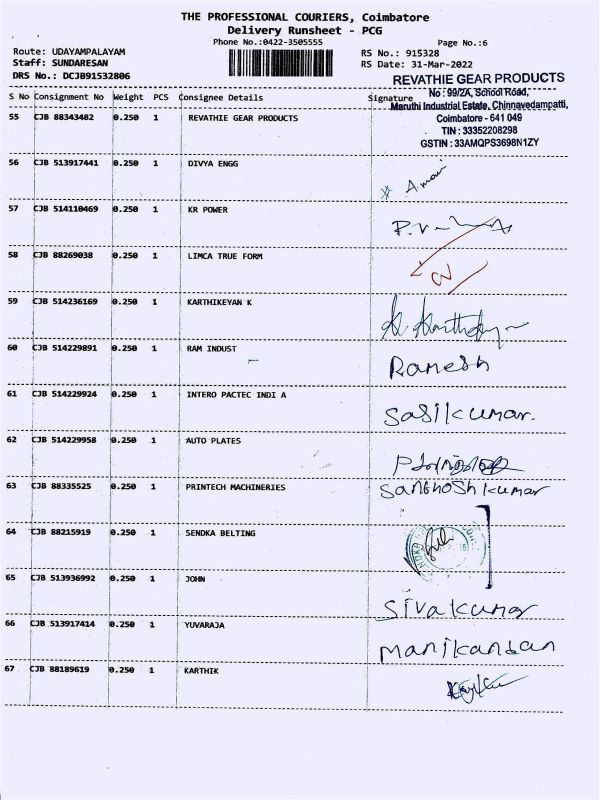 THE PROFESSIONAL COURIERS, Coimbatore
Delivery Runsheet - PCG
Phone No.:0422-3505555
Page No.:6
Route: UDAYAMPALAYAM
RS No.: 915328
Staff: SUNDARESAN
RS Date: 31-Mar-2022
DRS No.: DCJB91532806
REVATHIE GEAR PRODUCTS
No : 99/2A, School Road,
Maruthi Industrial Estate, Chinnavedampatti,
Coimbatore - 641 049
TIN : 33352208298
GSTIN : 33AMQPS3698N1ZY
S No Consignment No Weight PCS Consignee Details Signature
55 CJB 88343482 0.250 1 REVATHIE GEAR PRODUCTS
56 CJB 513917441 0.250 1 DIVYA ENGG
57 CJB 514110469 0.250 1 KR POWER
58 CJB 88269038 0.250 1 LIMCA TRUE FORM
59 CJB 514236169 0.250 1 KARTHIKEYAN K
60 CJB 514229891 0.250 1 RAM INDUST Ramesh
61 CJB 514229924 0.250 1 INTERO PACTEC INDI A Sasikumar.
62 CJB 514229958 0.250 1 AUTO PLATES
63 CJB 88335525 0.250 1 PRINTECH MACHINERIES Santhosh kumar
64 CJB 88215919 0.250 1 SENDKA BELTING
65 CJB 513936992 0.250 1 JOHN Sivakumar
66 CJB 513917414 0.250 1 YUVARAJA Manikandan
67 CJB 88189619 0.250 1 KARTHIK